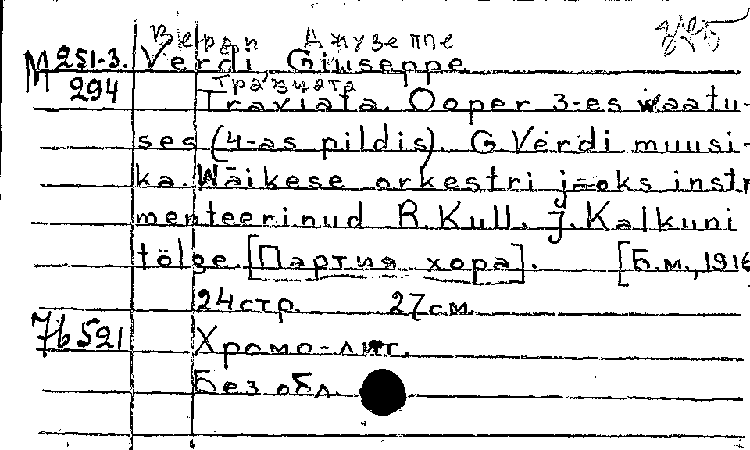 Верди Джузеппе
М 251-3. Verdi Giuseppe
294 Травиата
Traviata. Ooper 3-es waatu-
ses (4-as pildis). G. Verdi muusi-
ka. Wäikese orkestri jaoks instr
menteerinud R. Kull. J. Kalkuni
tõlge. [Партия хора]. [Б.м., 1916
24 стр. 27 см.
76521 Хромо-лит.
Без обл.